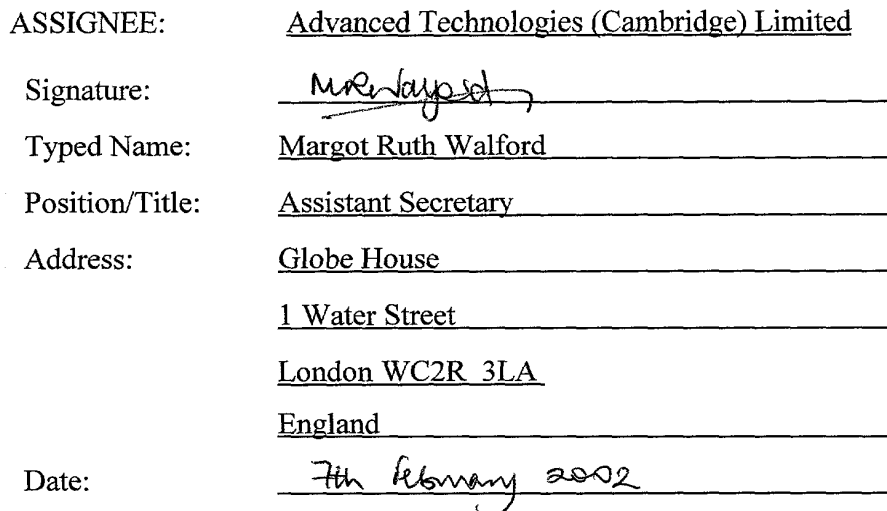 ASSIGNEE: Advanced Technologies (Cambridge) Limited
Signature: MRWalford
Typed Name: Margot Ruth Walford
Position/Title: Assistant Secretary
Address: Globe House
1 Water Street
London WC2R 3LA
England
Date: 7th February 2002